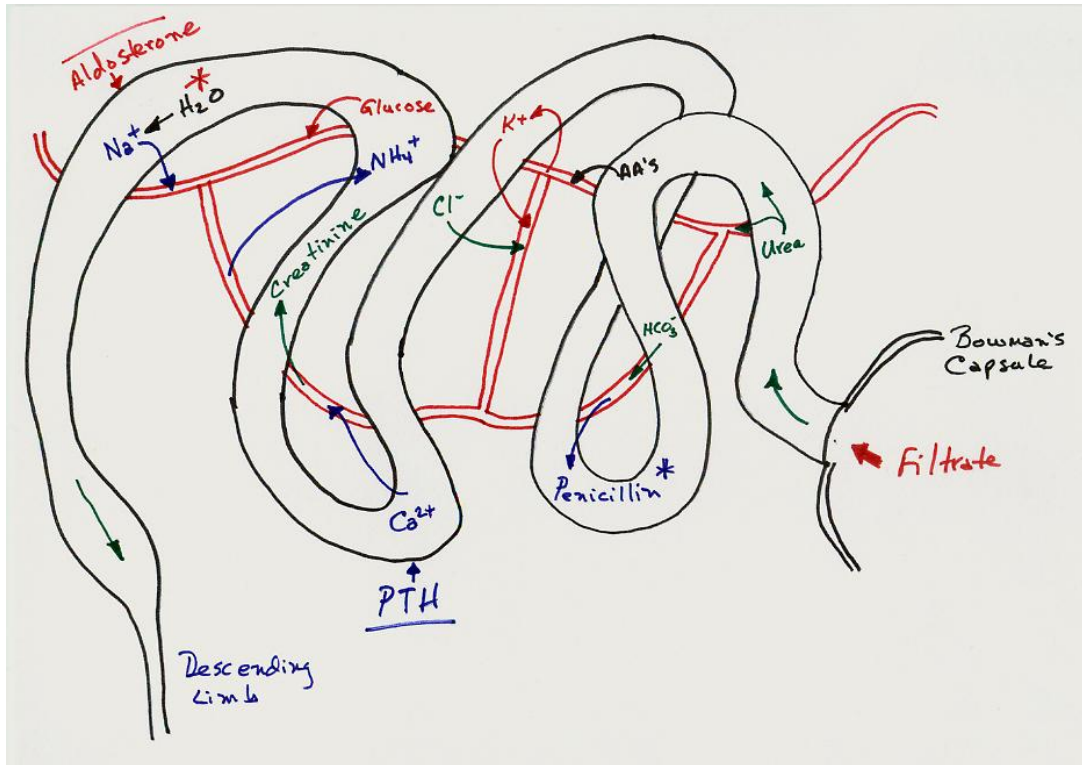 Aldosterone
*
H2O
Na+
Glucose
NH4+
K+
AA's
Cl-
Creatinine
Urea
HCO3-
Bowman's
Capsule
Filtrate
Penicillin *
Ca2+
PTH
Descending
Limb